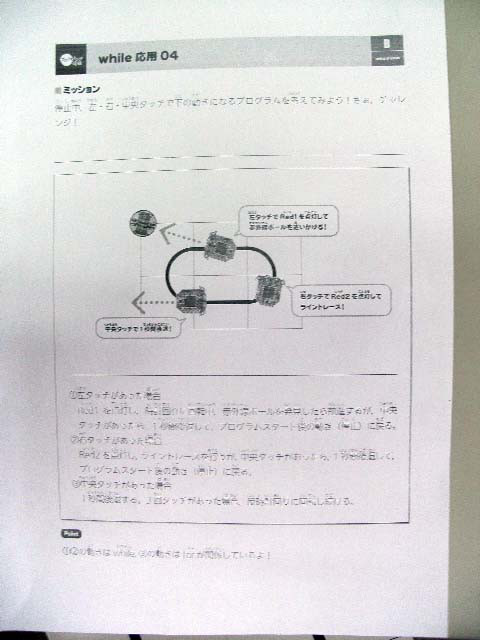 while 応用 04
B
ミッション
停止中、左・右・中央タッチで下の動きになるプログラムを考えてみよう！さぁ、チャレ
ンジ！
左タッチで Red1 を点灯して
赤外線ボールを追いかける！
右タッチで Red2 を点灯して
ライントレース！
中央タッチで 1 秒間後退！
①左タッチがあった場合
Red1 を点灯し、時計回りに回転中、赤外線ボールを発見したら前進するが、中央
タッチがあったら、1 秒後退して、プログラムスタート後の動き（停止）に戻る。
②右タッチがあった場合
Red2 を点灯し、ライントレースを行うが、中央タッチがあったら、1 秒後退して、
プログラムスタート後の動き（停止）に戻る。
③中央タッチがあった場合
1 秒間後退する。3 回タッチがあった場合、反時計回りに回転し続ける。
Point
①②の動きは while、③の動きは for が関係しているよ！